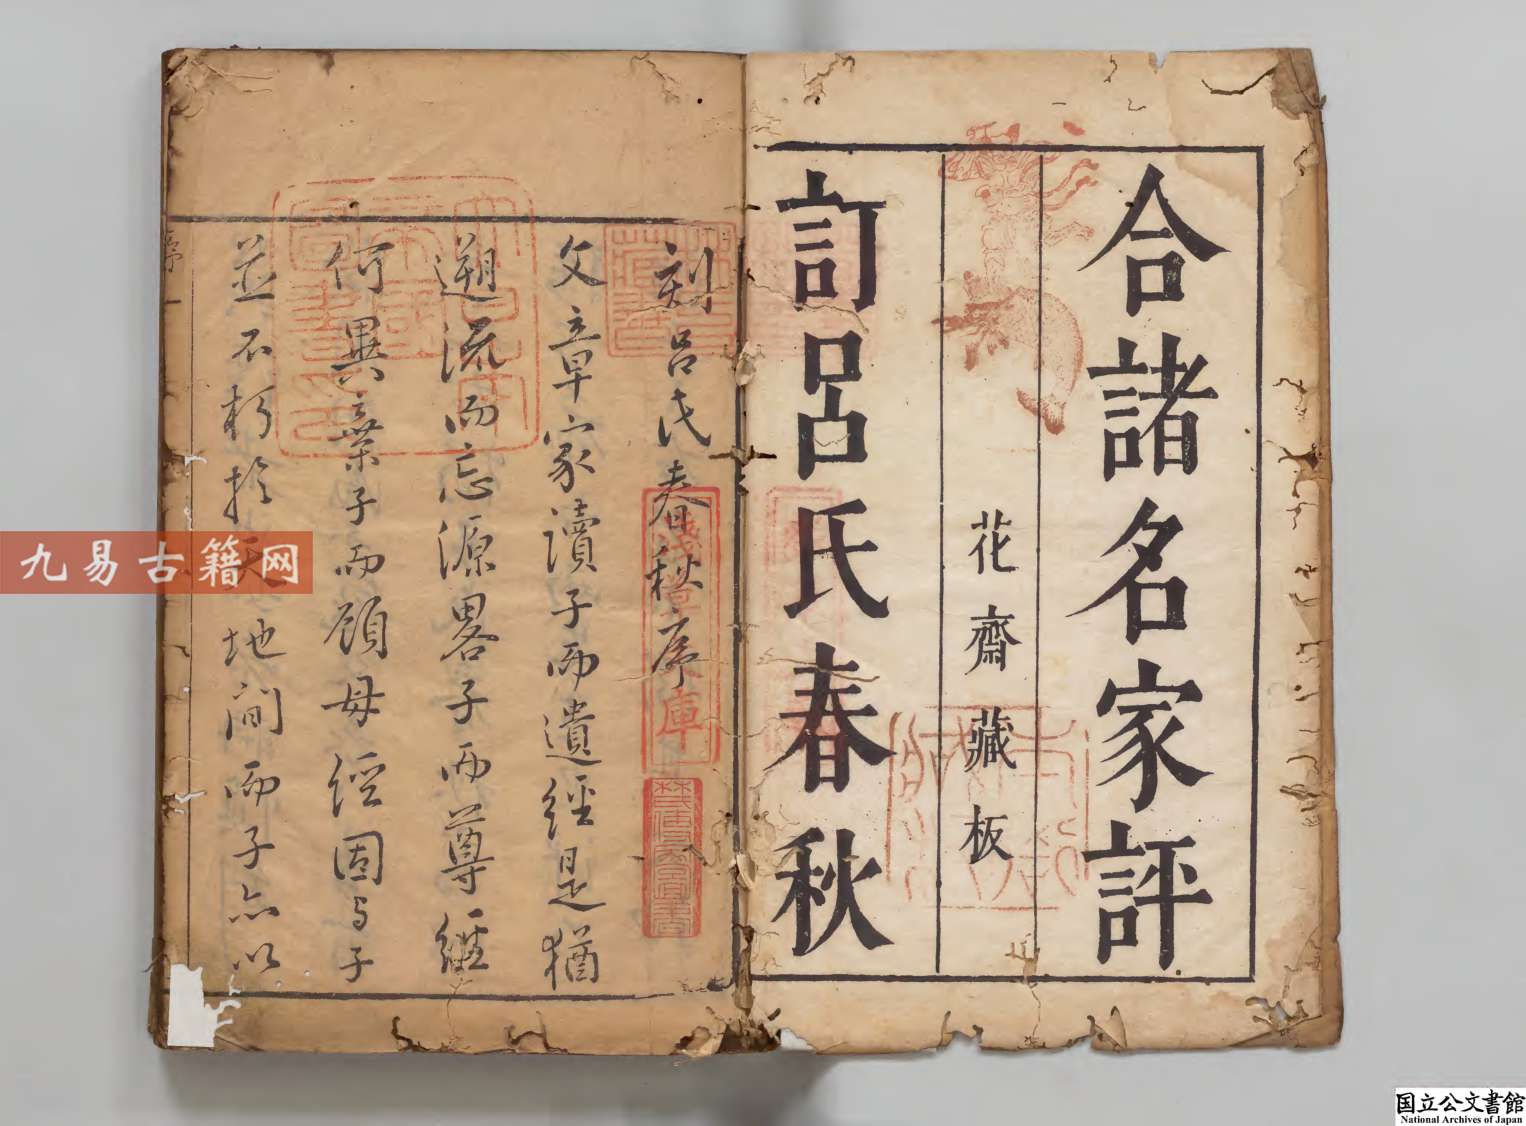 合諸名家評
花齋藏板
訂呂氏春秋
刻呂氏春秋序
文章家讀子而遺經是猶
遡流而忘源畧子而尊經
何異棄子而顧母經固与子
並不朽於天地間而子亦以
序 一
九易古籍网
国立公文書館
National Archives of Japan